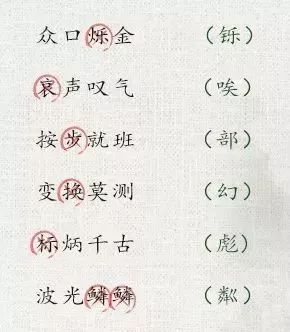 众口烁金 （铄）
哀声叹气 （唉）
按步就班 （部）
变换莫测 （幻）
标炳千古 （彪）
波光鳞鳞 （粼）